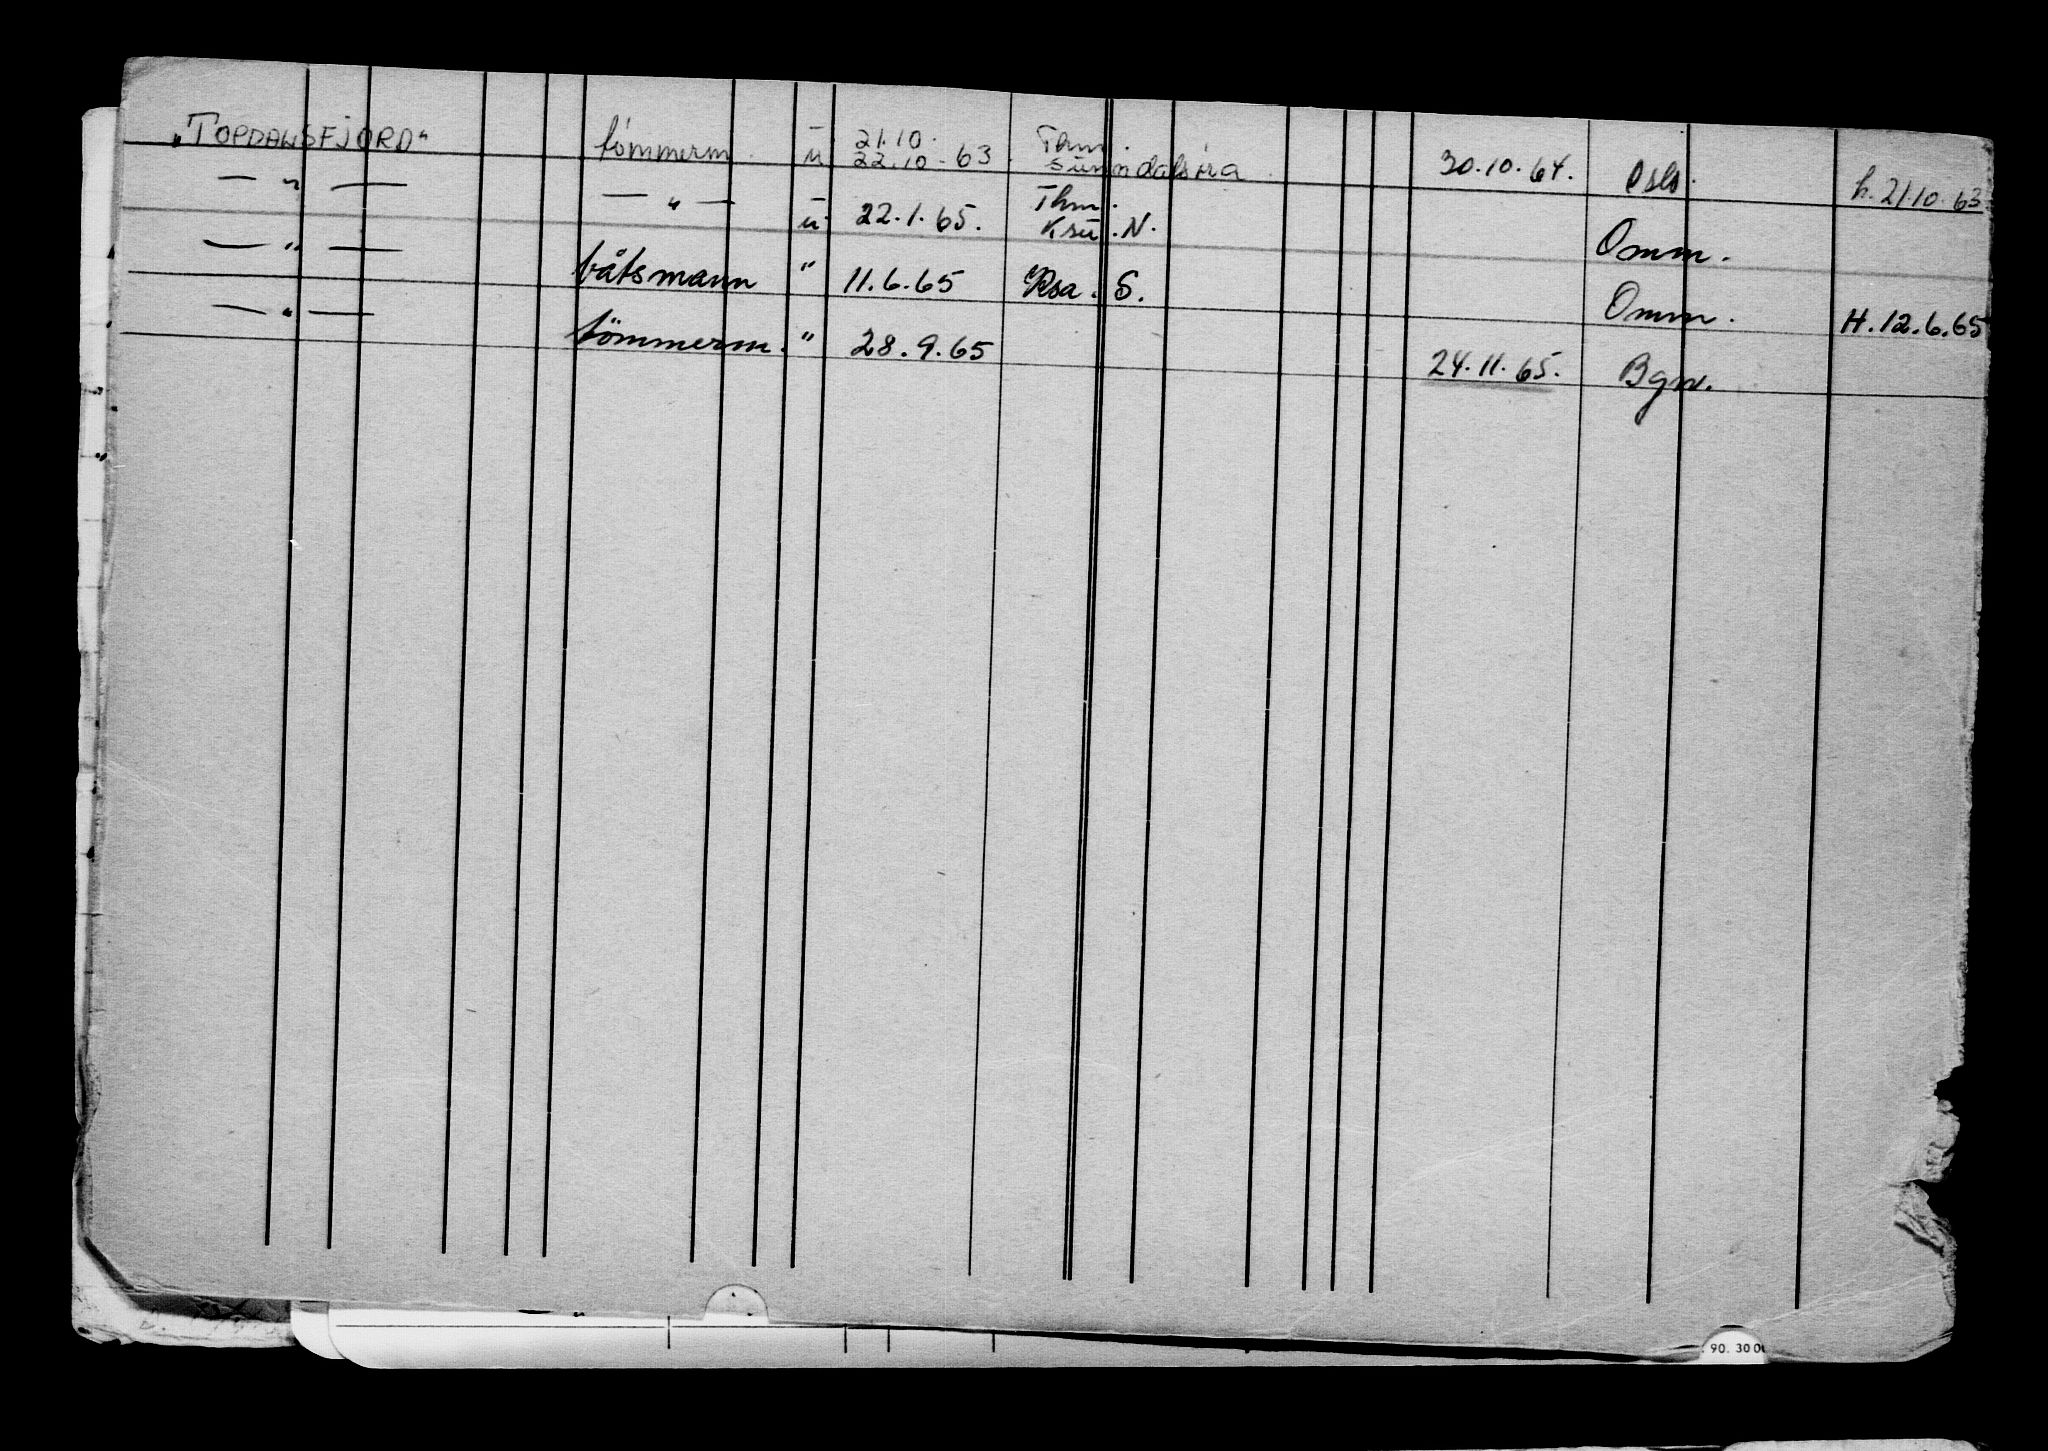 "TOPDALSFJORD" tömmerm. ü 21.10. Thm.
ü 22.10-63. Sunndalsöra. 30.10.64. Oslo. h. 21.10.63
— " — — " — ü 22.1.65. Thm. Ksü.N. Omm.
— " — båtsmann " 11.6.65 Ksa. S. Omm. H.12.6.65
— " — tömmerm. " 28.9.65 24.11.65. Bgn.
90. 300